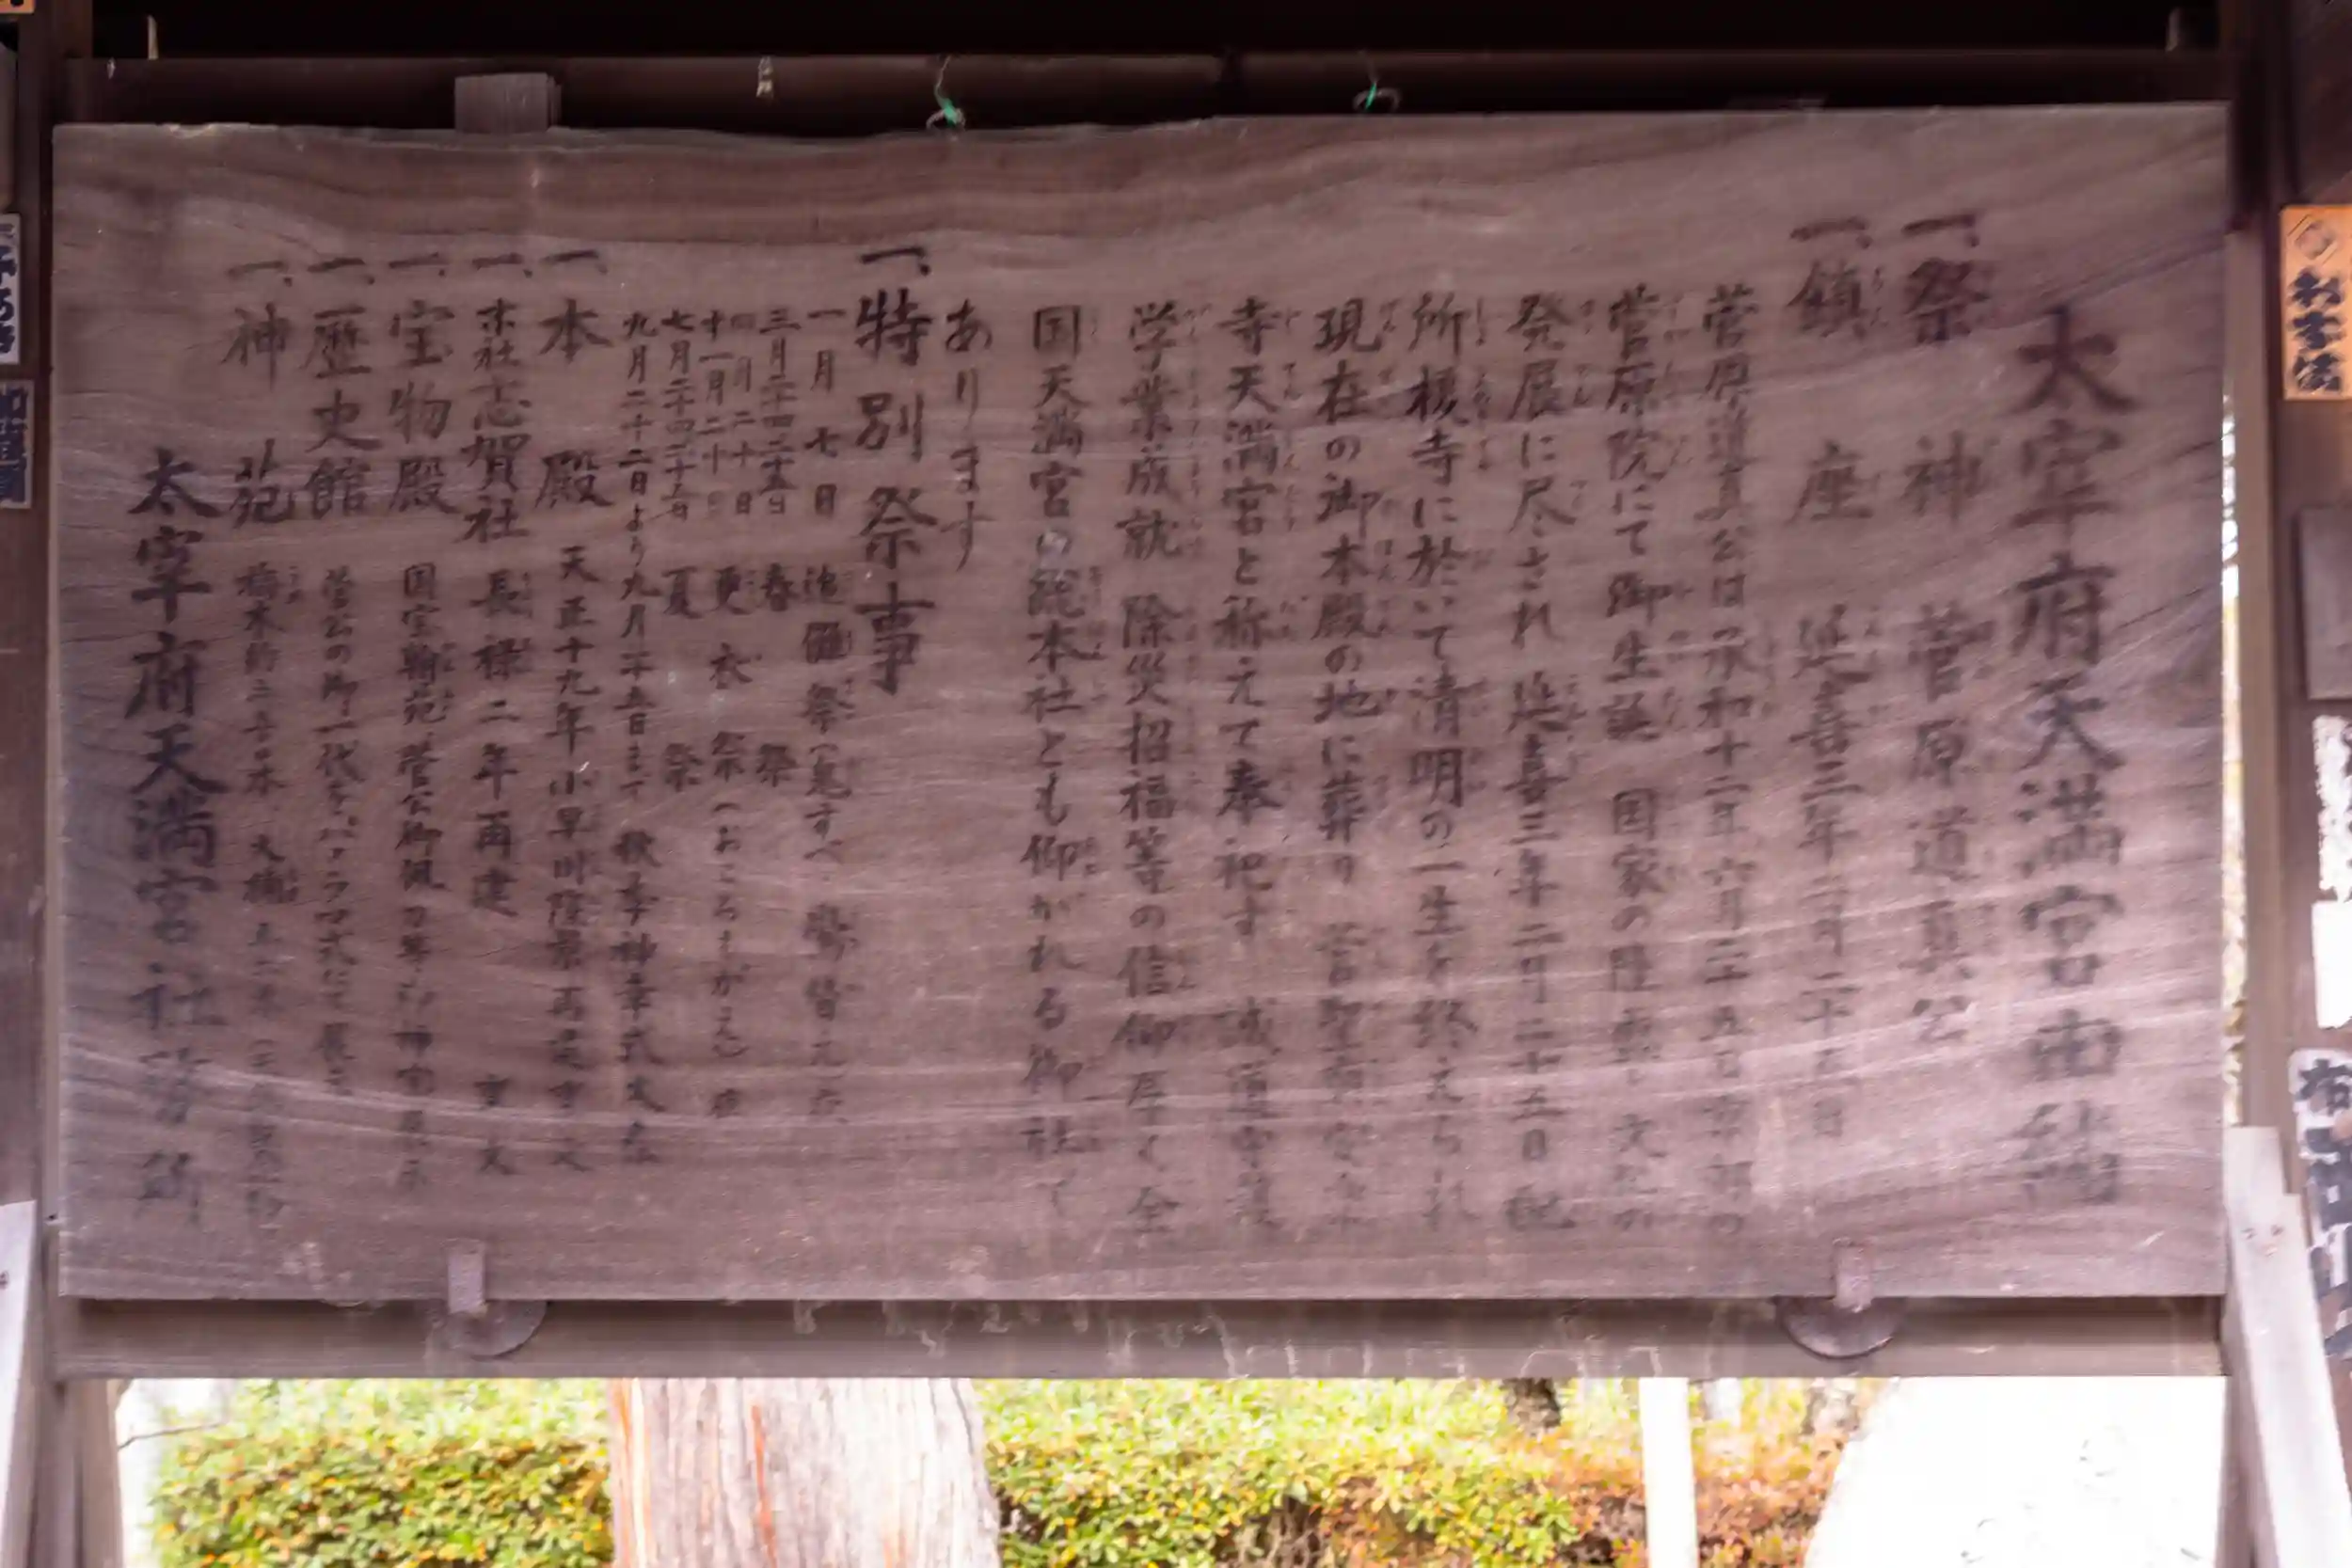 太宰府天満宮由緒
一、祭神 菅原道真公
一、鎮座 延喜三年二月二十五日
菅原道真公は承和十二年六月二十五日京都の
菅原院にて御生誕 国家の隆 文化の
発展に尽され 延喜三年二月二十五日配
所榎寺に於いて清明の一生を終えられ
現在の御本殿の地に葬り 菅聖廟安楽
寺天満宮と称えて奉祀す 誠道守護
学業成就 除災招福等の信仰厚く全
国天満宮の総本社とも仰がれる御社で
あります
一、特別祭事
一月七日 祭
三月二十四二十五日 春祭
四月二十日
十一月二十日 更衣祭（おころもがえ）
七月二十四二十五日 夏祭
九月二十二日より九月二十五日まで 秋季神幸式大祭
一、本殿 天正十九年小早川隆景再建
一、末社志賀社 長禄二年再建 重文
一、宝物殿 国宝翰苑、菅公御佩刀等
一、歴史館 菅公の御一代を
一、神苑
太宰府天満宮社務所